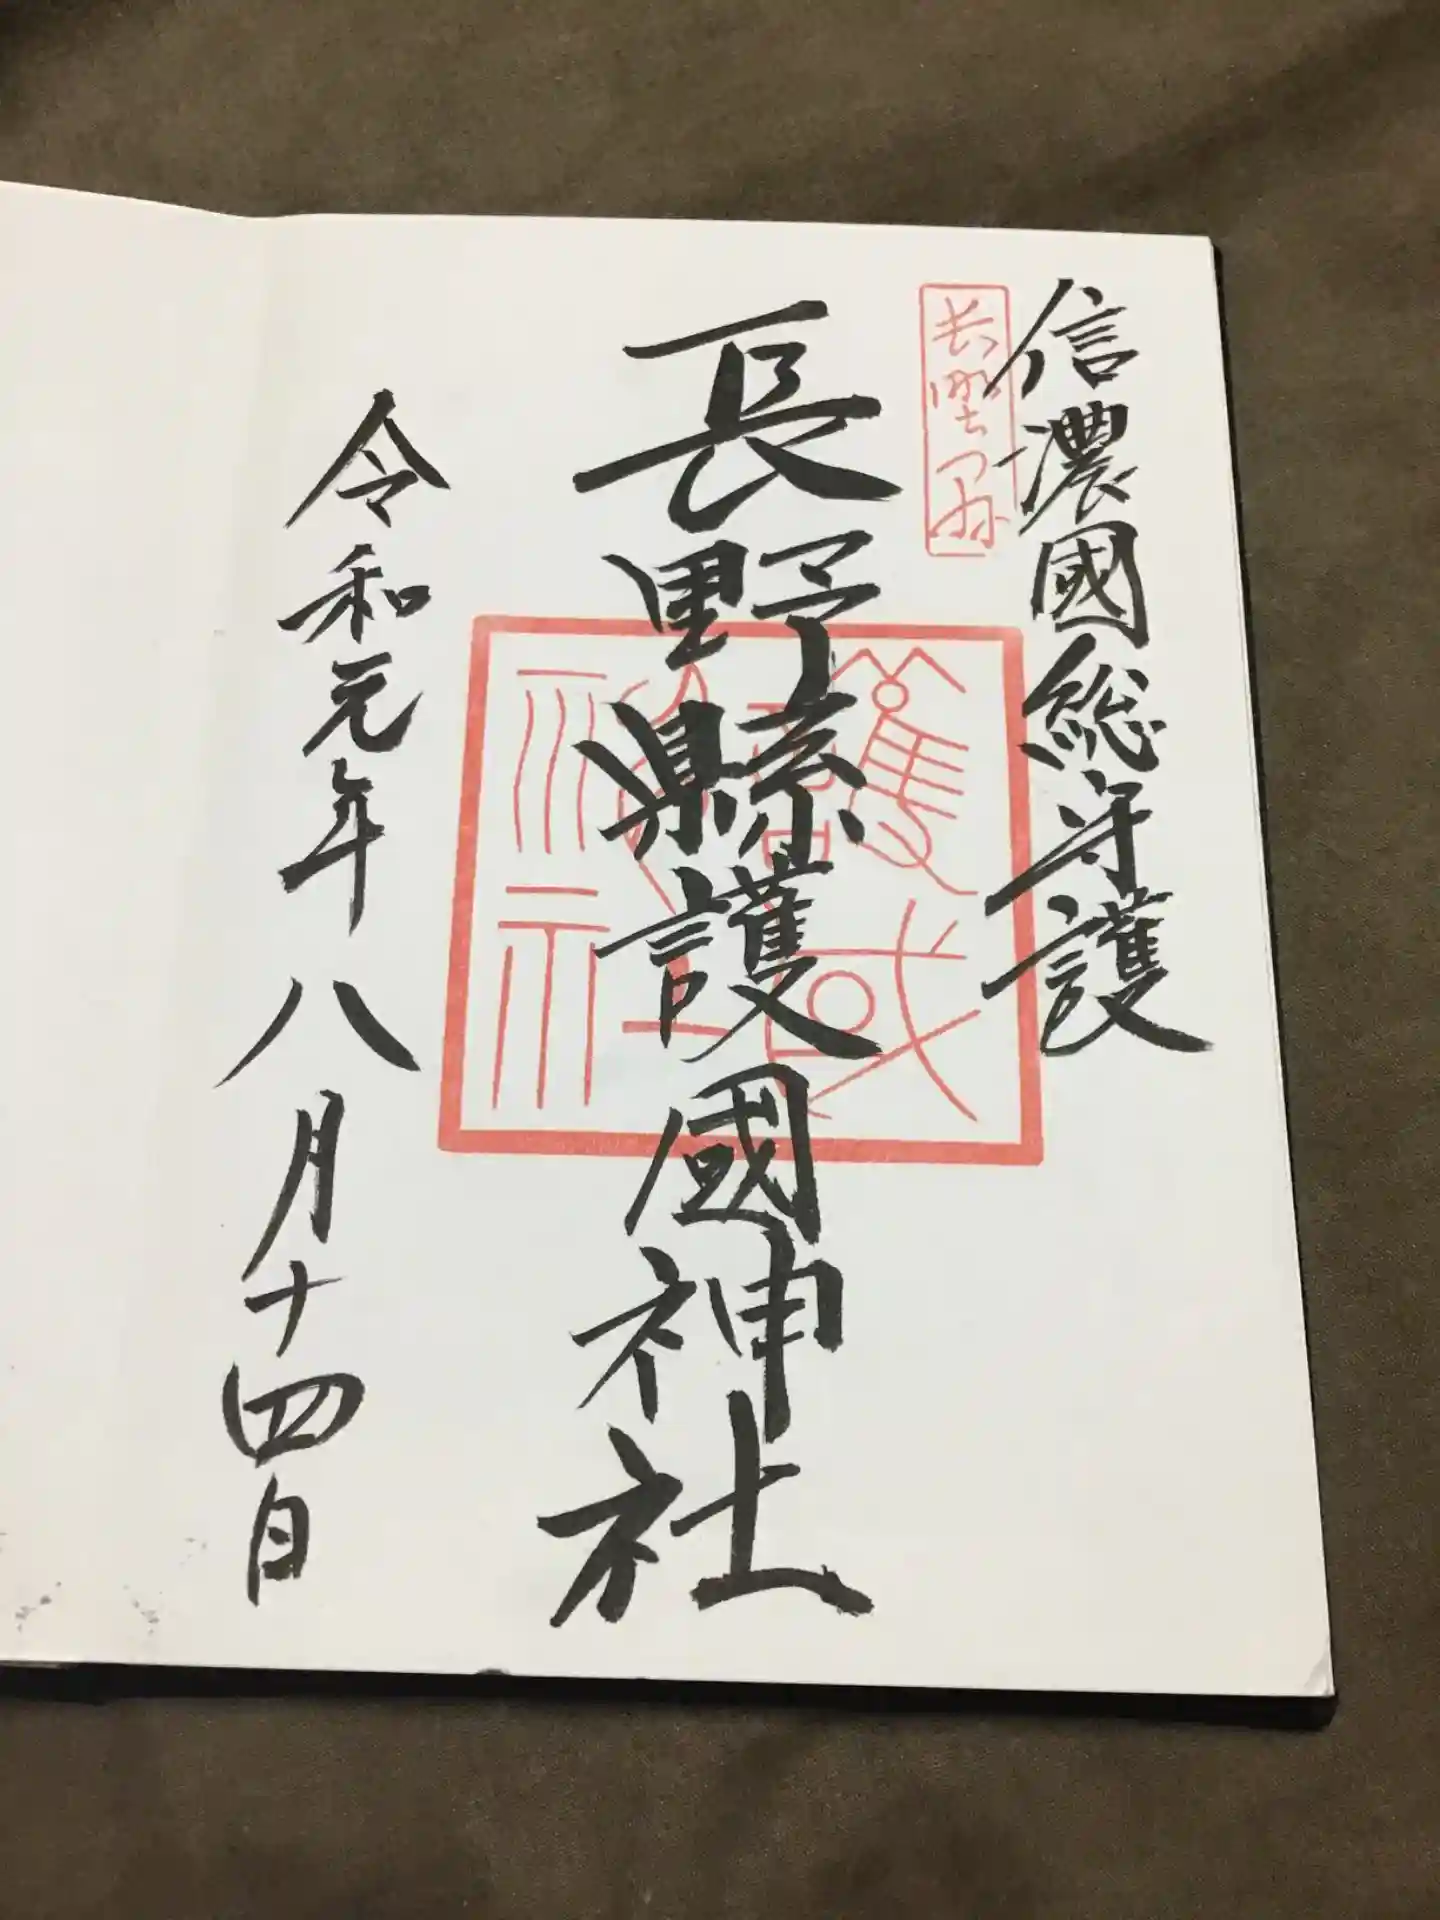 信濃國総守護
長野縣
長野縣護國神社
護國神社
令和元年八月十四日